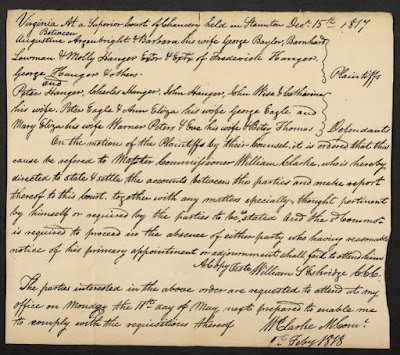 Virginia At a Superior Court of Chancery held in Staunton Decr. 15th 1817
Between
Augustine Argenbright & Barbara his wife George Baylor, Barnhard
Lowman & Molly Hanger Exor & Extx of Frederick Hanger,
George Hanger & others. Plaintiffs
and
Peter Hanger, Charles Hanger, John Hanger, John Wise & Catharine
his wife, Peter Eagle & Ann Eliza his wife George Eagle and
Mary Eliza his wife Warner Peters & Eve his wife & Betsy Thomas Defendants
On the motion of the Plaintiffs by their Counsel. it is ordered that this
cause be refered to Master Commissioner William Clarke, who is hereby
directed to state & settle the accounts between the parties and make report
thereof to this Court. together with any matters specially thought pertinent
by himself or required by the parties to be so stated And the sd Commr.
is required to proceed in the absence of either party who having reasonable
notice of his primary appointment or adjournment shall fail to attend him
A Copy Teste William S Eskridge C.C.C.
The parties interested in the above order are requested to attend at my
office on Monday the 11th day of May next prepared to enable me
to comply with the requisitions thereof
Wm Clarke M Comr.
Feby 1818